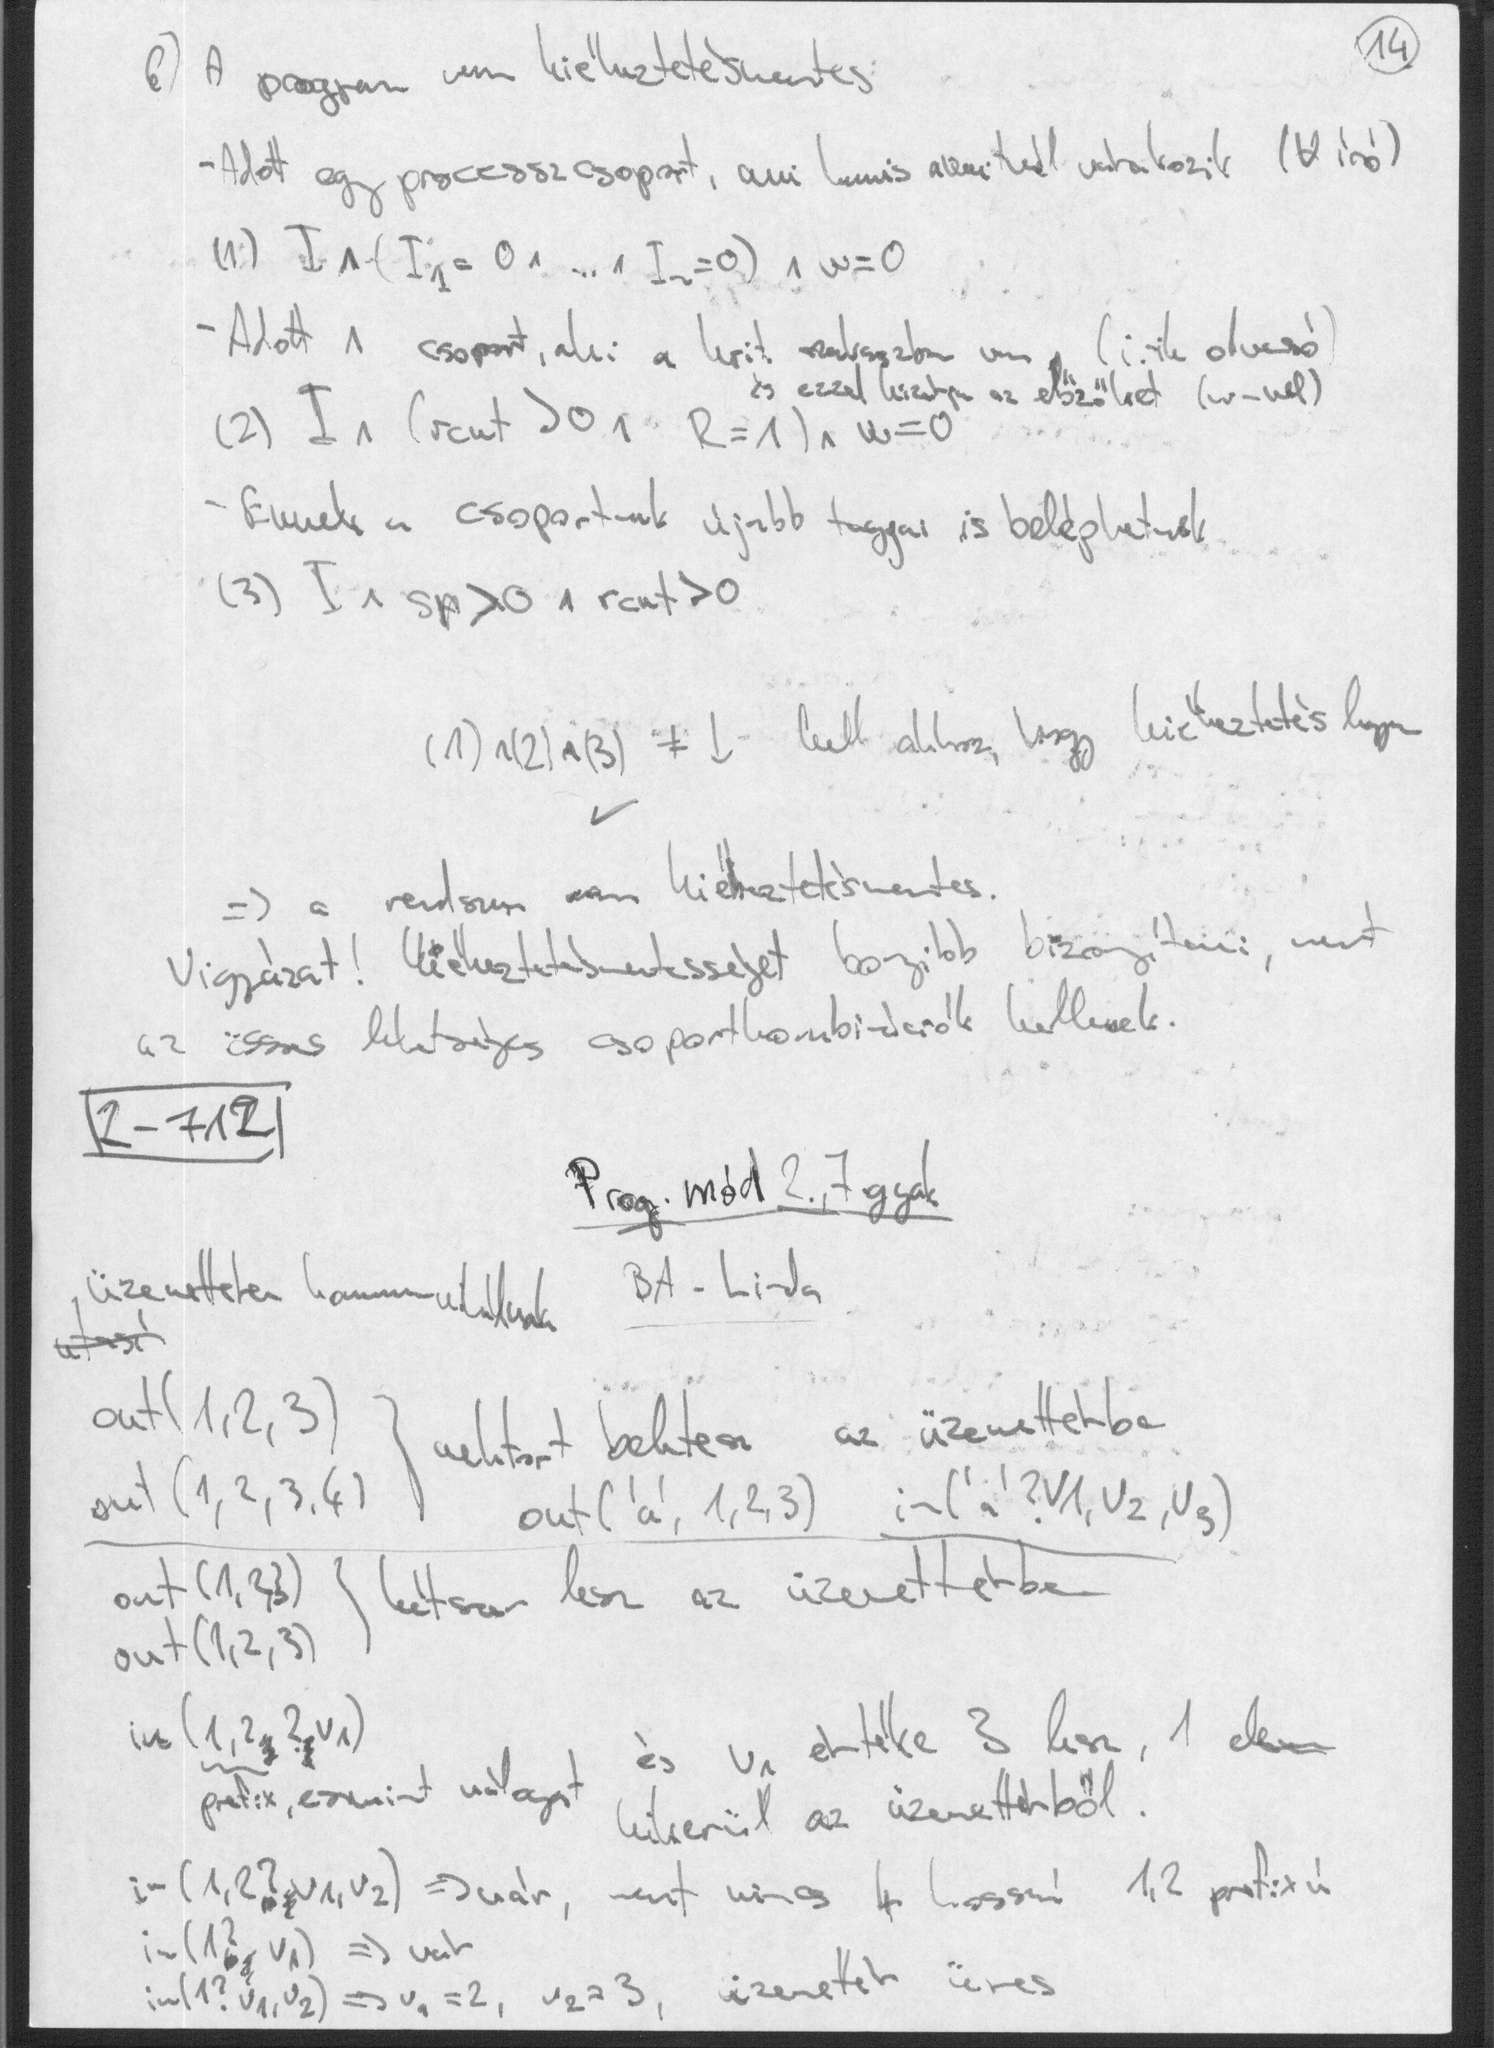 14
b) A program nem kiéheztetésmentes
- Adott egy processzcsoport, ami hamis await-nél várakozik (∀ író)
(1) I ∧ (I1 = 0 ∧ ... ∧ In = 0) ∧ w=0
- Adott 1 csoport, aki a krit. szakaszban van, (i.-ik olvasó)
és ezzel kizárja az előzőket (w-vel)
(2) I ∧ (rcnt > 0 ∧ R=1) ∧ w=0
- Ennek a csoportnak újabb tagjai is beléphetnek
(3) I ∧ sp>0 ∧ rcnt>0
(1) ∧ (2) ∧ (3) ≠ ↓ kell ahhoz, hogy kiéheztetés legyen
✓
=> a rendszer nem kiéheztetésmentes.
Vigyázat! Kiéheztetésmentességet bonyibb bizonyítani, mert
az összes lehetséges csoportkombinációk kellenek.
2-712
Prog. mód 2., 7 gyak
üzenettéren kommunikálnak BA-Linda
utasí
out(1,2,3)
out(1,2,3,4) } vektort beletesz az üzenettérbe
out('a', 1,2,3) in('a'?v1,v2,v3)
out(1,2,3) } kétszer lesz az üzenettérben
out(1,2,3)
in(1,2 ? v1) és v1 értéke 3 lesz, 1 elem
prefix, eszerint válogat kikerül az üzenettérből.
in(1,2? v1,v2) => vár, mert nincs 4 hosszú 1,2 prefixű
in(1? v1) => vár
in(1? v1,v2) => v1=2, v2=3, üzenettér üres